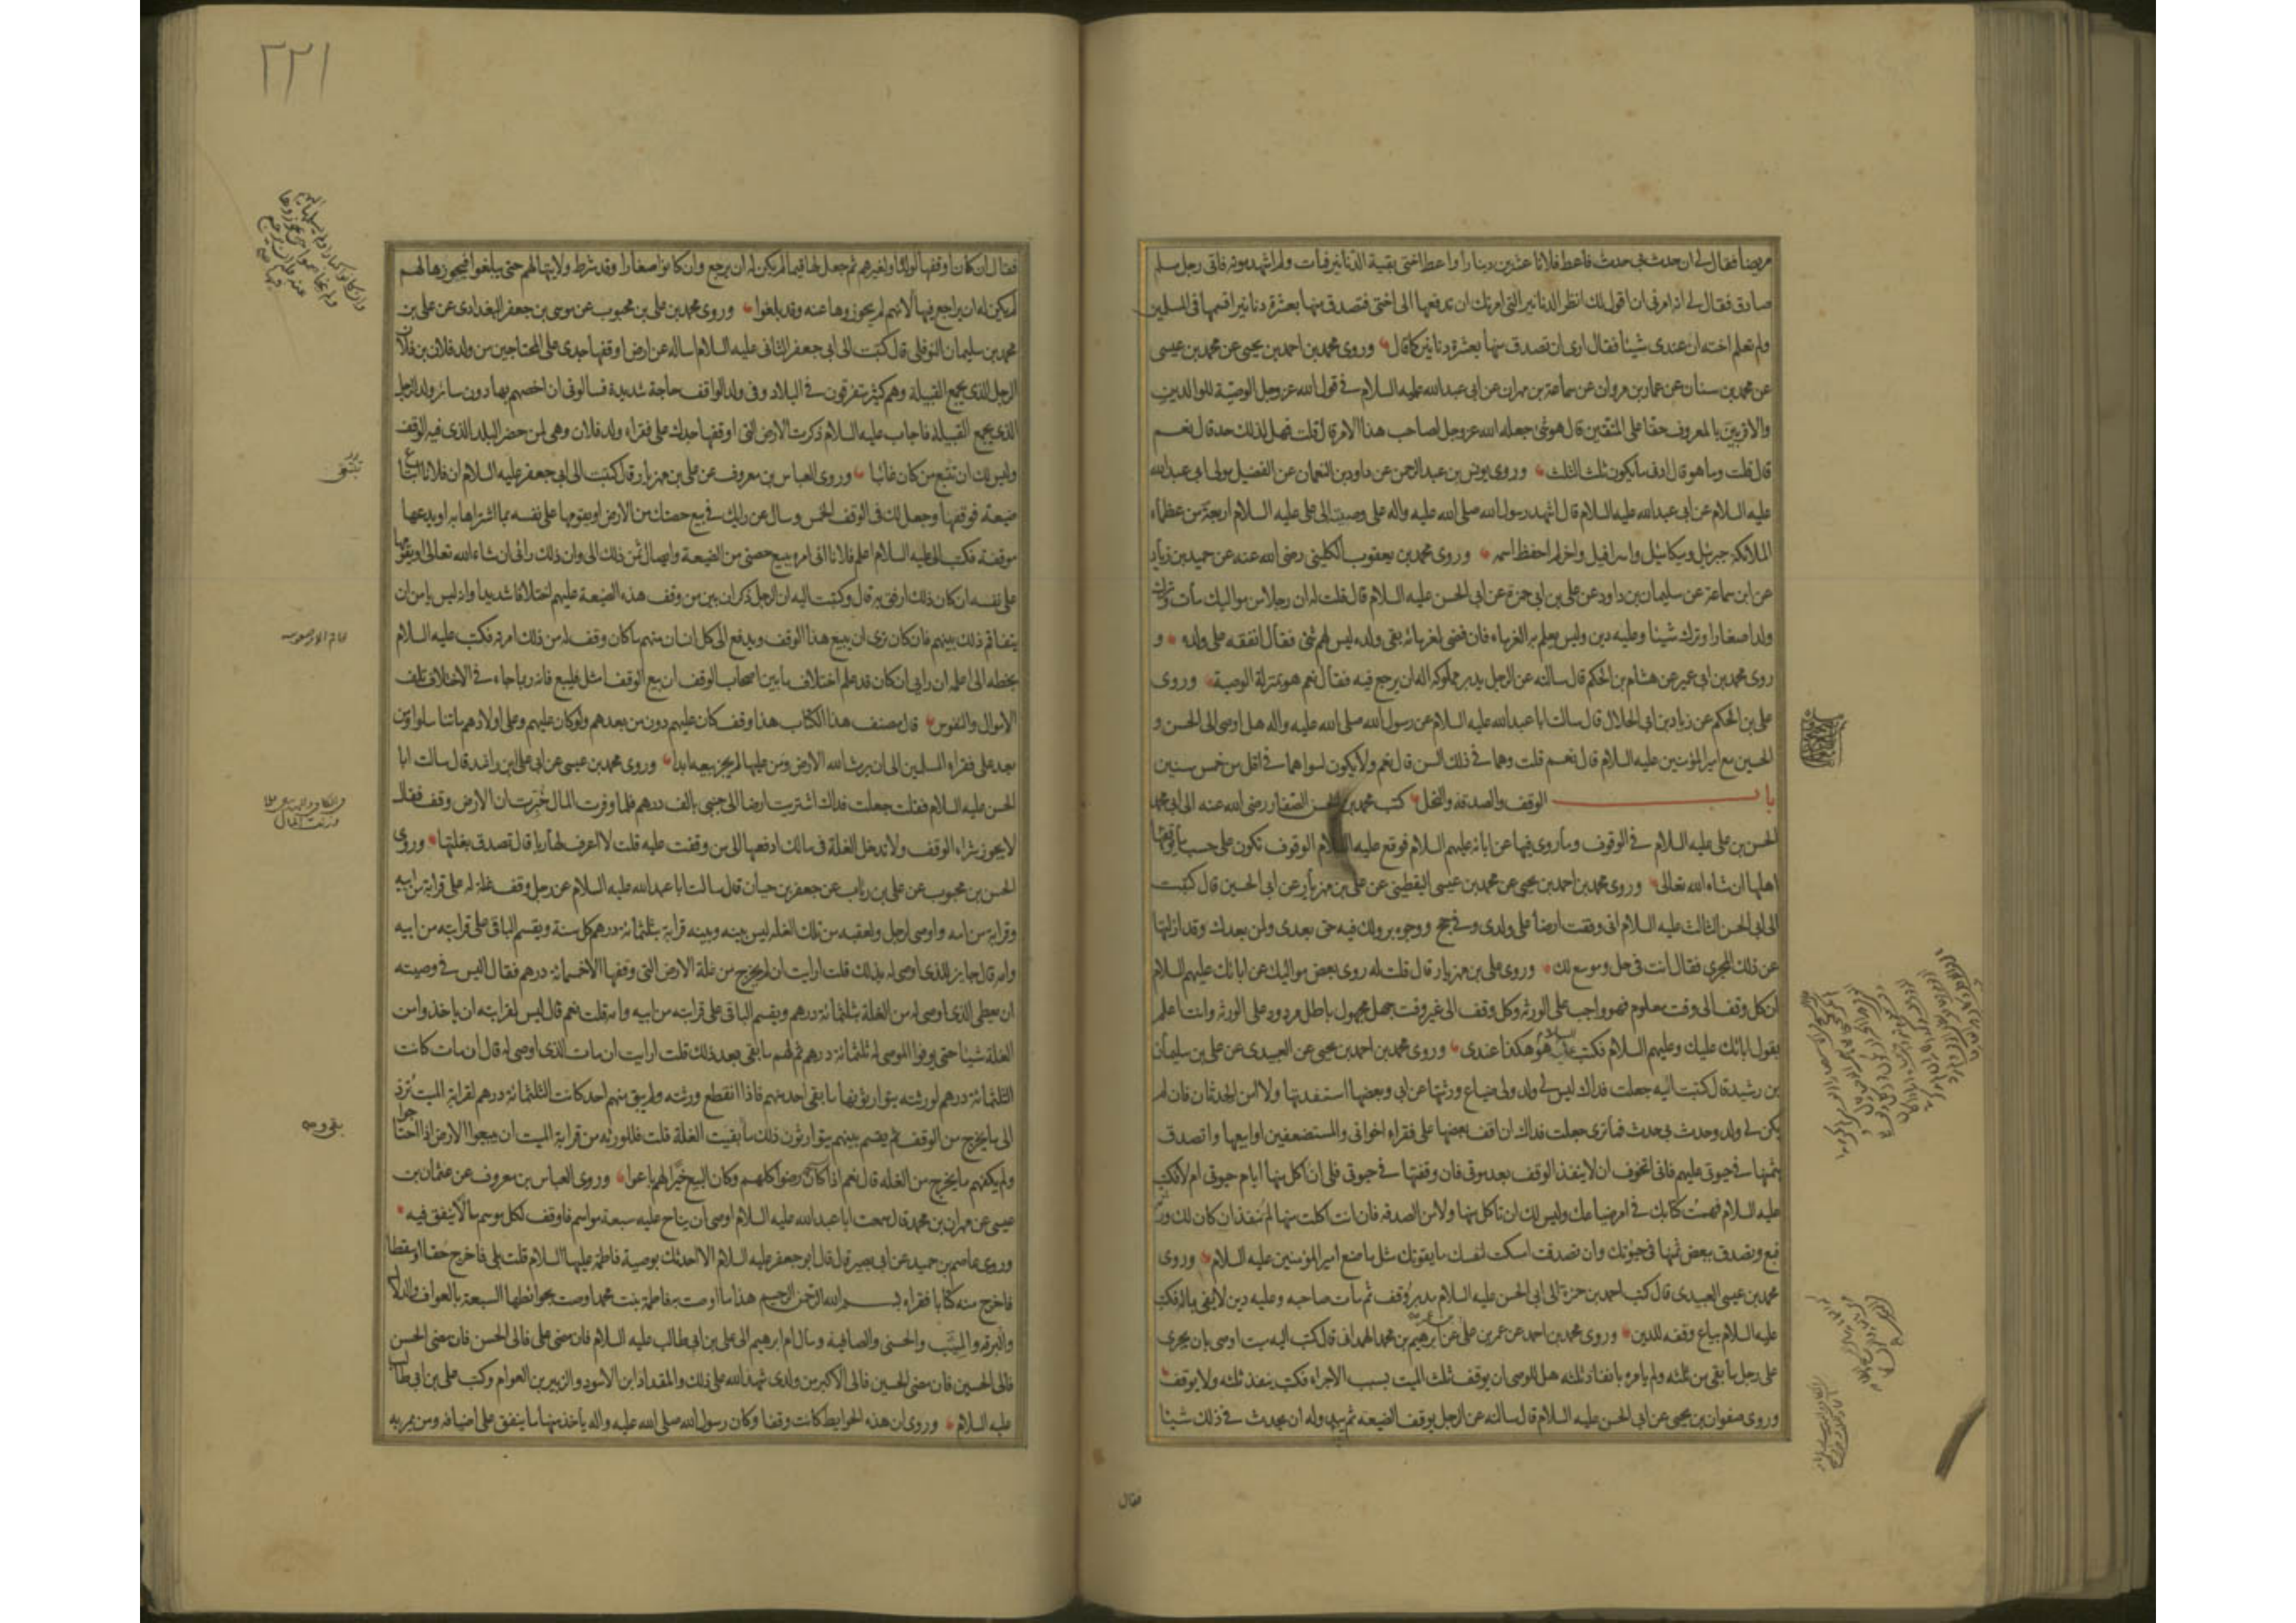 مريضا فقال لي ان حدث بي حدث فاعط فلانا عشرين دينارا واعط اختي بقية الدنانير فمات ولم اشهد موته فاتى رجل مسلم
صادق فقال لي انه امرني ان اقول لك انظر الدنانير التي امرتك ان تدفعها الى اختي فتصدق منها بعشرة دنانير اقسمها في المسلمين
ولم تعلم اخته ان عندي شيئا فقال ارى ان تصدق منها بعشرة دنانير كما قال وروى محمد بن احمد بن يحيى عن محمد بن عيسى
عن محمد بن سنان عن عمار بن مروان عن سماعة بن مهران عن ابي عبد الله عليه السلام في قول الله عز وجل الوصية للوالدين
والاقربين بالمعروف حقا على المتقين قال هو شئ جعله الله عز وجل لصاحب هذا الامر قال قلت فهل لذلك حد قال نعم
قال قلت وما هو قال ادنى ما يكون ثلث الثلث وروى يونس بن عبد الرحمن عن داود بن النعمان عن الفضيل مولى ابي عبد الله
عليه السلام عن ابي عبد الله عليه السلام قال اشهد رسول الله صلى الله عليه واله على وصيته الى علي عليه السلام اربعة من عظماء
الملائكة جبرئيل وميكائيل واسرافيل واخر لم احفظ اسمه وروى محمد بن يعقوب الكليني رضى الله عنه عن حميد بن زياد
عن ابن سماعة عن سليمان بن داود عن علي بن ابي حمزة عن ابي الحسن عليه السلام قال قلت له ان رجلا من مواليك مات وترك
ولدا صغارا وترك شيئا وعليه دين وليس يعلم به الغرماء فان قضى لغرمائه بقى ولده ليس لهم شئ فقال انفقه على ولده و
روى محمد بن ابي عمير عن هشام بن الحكم قال سالته عن الرجل يدبر مملوكه اله ان يرجع فيه فقال نعم هو بمنزلة الوصية وروى
علي بن الحكم عن زياد بن ابي الحلال قال سالت ابا عبد الله عليه السلام عن رسول الله صلى الله عليه واله هل اوصى الى الحسن و
الحسين مع امير المؤمنين عليه السلام قال نعم قلت وهما في ذلك السن قال نعم ولا يكون لسواهما في اقل من خمس سنين
باب الوقف والصدقة والنحل كتب محمد بن الحسن الصفار رضى الله عنه الى ابي محمد
الحسن بن علي عليه السلام في الوقوف وما روى فيها عن ابائه عليهم السلام فوقع عليه السلام الوقوف تكون على حسب ما يوقفها
اهلها ان شاء الله تعالى وروى محمد بن احمد بن يحيى عن محمد بن عيسى اليقطيني عن علي بن مهزيار عن ابي الحسين قال كتبت
الى ابي الحسن الثالث عليه السلام اني وقفت ارضا على ولدى وفي حج ووجوه بر ولك فيه حق بعدى ولمن بعدك وقد ازلتها
عن ذلك المجرى فقال انت في حل وموسع لك وروى علي بن مهزيار قال قلت له روى بعض مواليك عن ابائك عليهم السلام
ان كل وقف الى وقت معلوم فهو واجب على الورثة وكل وقف الى غير وقت جهل مجهول باطل مردود على الورثة وانت اعلم
بقول ابائك عليك وعليهم السلام فكتب عليه السلام هو هكذا عندى وروى محمد بن احمد بن يحيى عن العبيدى عن علي بن سليمان
بن رشيد قال كتبت اليه جعلت فداك ليس لي ولد ولى ضياع ورثتها عن ابي وبعضها استفدتها ولا امن الحدثان فان لم
يكن لي ولد وحدث بي حدث فما ترى جعلت فداك ان اقف بعضها على فقراء اخواني والمستضعفين او ابيعها واتصدق
بثمنها في حيوتى عليهم فاني اتخوف ان لا ينفذ الوقف بعد موتى فان وقفتها في حيوتى فلي ان اكل منها ايام حيوتى ام لا فكتب
عليه السلام فهمت كتابك في امر ضياعك وليس لك ان تاكل منها ولا من الصدقة فان انت اكلت منها لم تنفذ ان كان لك ورثة
فبع وتصدق ببعض ثمنها في حيوتك وان تصدقت امسكت لنفسك ما يقوتك مثل ما صنع امير المؤمنين عليه السلام وروى
محمد بن عيسى العبيدى قال كتب احمد بن حمزة الى ابي الحسن عليه السلام مدبر وقف ثم مات صاحبه وعليه دين لا يفى بماله فكتب
عليه السلام يباع وقفه للدين وروى محمد بن احمد عن عمر بن علي عن ابرهيم بن محمد الهمداني قال كتبت اليه ميت اوصى بان يجرى
على رجل ما بقى من ثلثه ولم يامر بانفاذ ثلثه هل للوصى ان يوقف ثلث الميت بسبب الاجراء فكتب ينفذ ثلثه ولا يوقف
وروى صفوان بن يحيى عن ابي الحسن عليه السلام قال سالته عن الرجل يوقف الضيعة ثم يبدو له ان يحدث في ذلك شيئا
فقال
٢٢١
فقال ان كان اوقفها لولده او لغيرهم ثم جعل لها قيما لم يكن له ان يرجع وان كانوا صغارا وقد شرط ولايتها لهم حتى يبلغوا فيحوزها لهم
لم يكن له ان يراجع فيها لانهم لم يحوزوها عنه وقد بلغوا وروى محمد بن علي بن محبوب عن موسى بن جعفر البغدادى عن علي بن
محمد بن سليمان النوفلي قال كتبت الى ابي جعفر الثاني عليه السلام اساله عن ارض اوقفها جدى على المحتاجين من ولد فلان بن فلان
الرجل الذى يجمع القبيلة وهم كثير متفرقون في البلاد وفى ولد الواقف حاجة شديدة فسالوني ان اخصهم بها دون سائر ولد الرجل
الذى يجمع القبيلة فاجاب عليه السلام ذكرت الارض التي اوقفها جدك على فقراء ولد فلان وهي لمن حضر البلد الذى فيه الوقف
وليس لك ان تتبع من كان غائبا وروى العباس بن معروف عن علي بن مهزيار قال كتبت الى ابي جعفر عليه السلام ان فلانا ابتاع
ضيعة فوقفها وجعل لك في الوقف الخمس وسال عن رايك في بيع حصتك من الارض او يقومها على نفسه بما اشتراها به او يدعها
موقفة فكتب الي عليه السلام اعلم فلانا اني امره ببيع حصتى من الضيعة وايصال ثمن ذلك الي وان ذلك رائي ان شاء الله تعالى او يقومها
على نفسه ان كان ذلك ارفق به قال وكتبت اليه ان الرجل ذكر ان بين من وقف هذه الضيعة عليهم اختلافا شديدا وانه ليس يامن ان
يتفاقم ذلك بينهم فان كان ترى ان يبيع هذا الوقف ويدفع الى كل انسان منهم ما كان وقف له من ذلك امرته فكتب عليه السلام
بخطه الي اعلمه ان رايي ان كان قد علم اختلاف ما بين اصحاب الوقف ان بيع الوقف امثل فليبع فانه ربما جاء في الاختلاف تلف
الاموال والنفوس قال مصنف هذا الكتاب هذا وقف كان عليهم دون من بعدهم ولو كان عليهم وعلى اولادهم ما تناسلوا ومن
بعد على فقراء المسلمين الى ان يرث الله الارض ومن عليها لم يجز بيعه ابدا وروى محمد بن عيسى عن ابي علي ابن راشد قال سالت ابا
الحسن عليه السلام فقلت جعلت فداك اشتريت ارضا الى جنبي بالف درهم فلما وفرت المال خبرت ان الارض وقف فقال
لا يجوز شراء الوقف ولا تدخل الغلة في مالك ادفعها الى من وقفت عليه قلت لا اعرف لها ربا قال تصدق بغلتها وروى
الحسن بن محبوب عن علي بن رئاب عن جعفر بن حيان قال سالت ابا عبد الله عليه السلام عن رجل وقف غلة له على قرابة من ابيه
وقرابة من امه واوصى لرجل ولعقبه من تلك الغلة ليس بينه وبينه قرابة بثلثمائة درهم كل سنة ويقسم الباقي على قرابته من ابيه
وامه قال جايز للذى اوصى له بذلك قلت ارايت ان لم يخرج من غلة الارض التي وقفها الا خمسمائة درهم فقال اليس في وصيته
ان يعطى الذى اوصى له من الغلة ثلثمائة درهم ويقسم الباقي على قرابته من ابيه وامه قلت نعم قال ليس لقرابته ان ياخذوا من
الغلة شيئا حتى يوفوا الموصى له ثلثمائة درهم ثم لهم ما بقى بعد ذلك قلت ارايت ان مات الذى اوصى له قال ان مات كانت
الثلثمائة درهم لورثته يتوارثونها ما بقى احد منهم فاذا انقطع ورثته ولم يبق منهم احد كانت الثلثمائة درهم لقرابة الميت ترد
الى ما يخرج من الوقف ثم يقسم بينهم يتوارثون ذلك ما بقيت الغلة قلت فللورثة من قرابة الميت ان يبيعوا الارض اذا احتاجوا
ولم يكفهم ما يخرج من الغلة قال نعم اذا كانوا رضوا كلهم وكان البيع خيرا لهم باعوا وروى العباس بن معروف عن عثمان بن
عيسى عن مهران بن محمد قال سمعت ابا عبد الله عليه السلام اوصى ان يناح عليه سبعة مواسم فاوقف لكل موسم مالا ينفق فيه
وروى عاصم بن حميد عن ابي بصير قال قال ابو جعفر عليه السلام الا احدثك بوصية فاطمة عليها السلام قلت بلى فاخرج حقا او سفطا
فاخرج منه كتابا فقراه بسم الله الرحمن الرحيم هذا ما اوصت به فاطمة بنت محمد اوصت بحوائطها السبعة بالعواف والدلال
والبرقة والميثب والحسنى والصافية ومال ام ابرهيم الى علي بن ابي طالب عليه السلام فان مضى علي فالى الحسن فان مضى الحسن
فالى الحسين فان مضى الحسين فالى الاكبر من ولدى شهد الله على ذلك والمقداد ابن الاسود والزبير بن العوام وكتب علي بن ابي طالب
عليه السلام وروى ان هذه الحوايط كانت وقفا وكان رسول الله صلى الله عليه واله ياخذ منها ما ينفق على اضيافه ومن يمر به